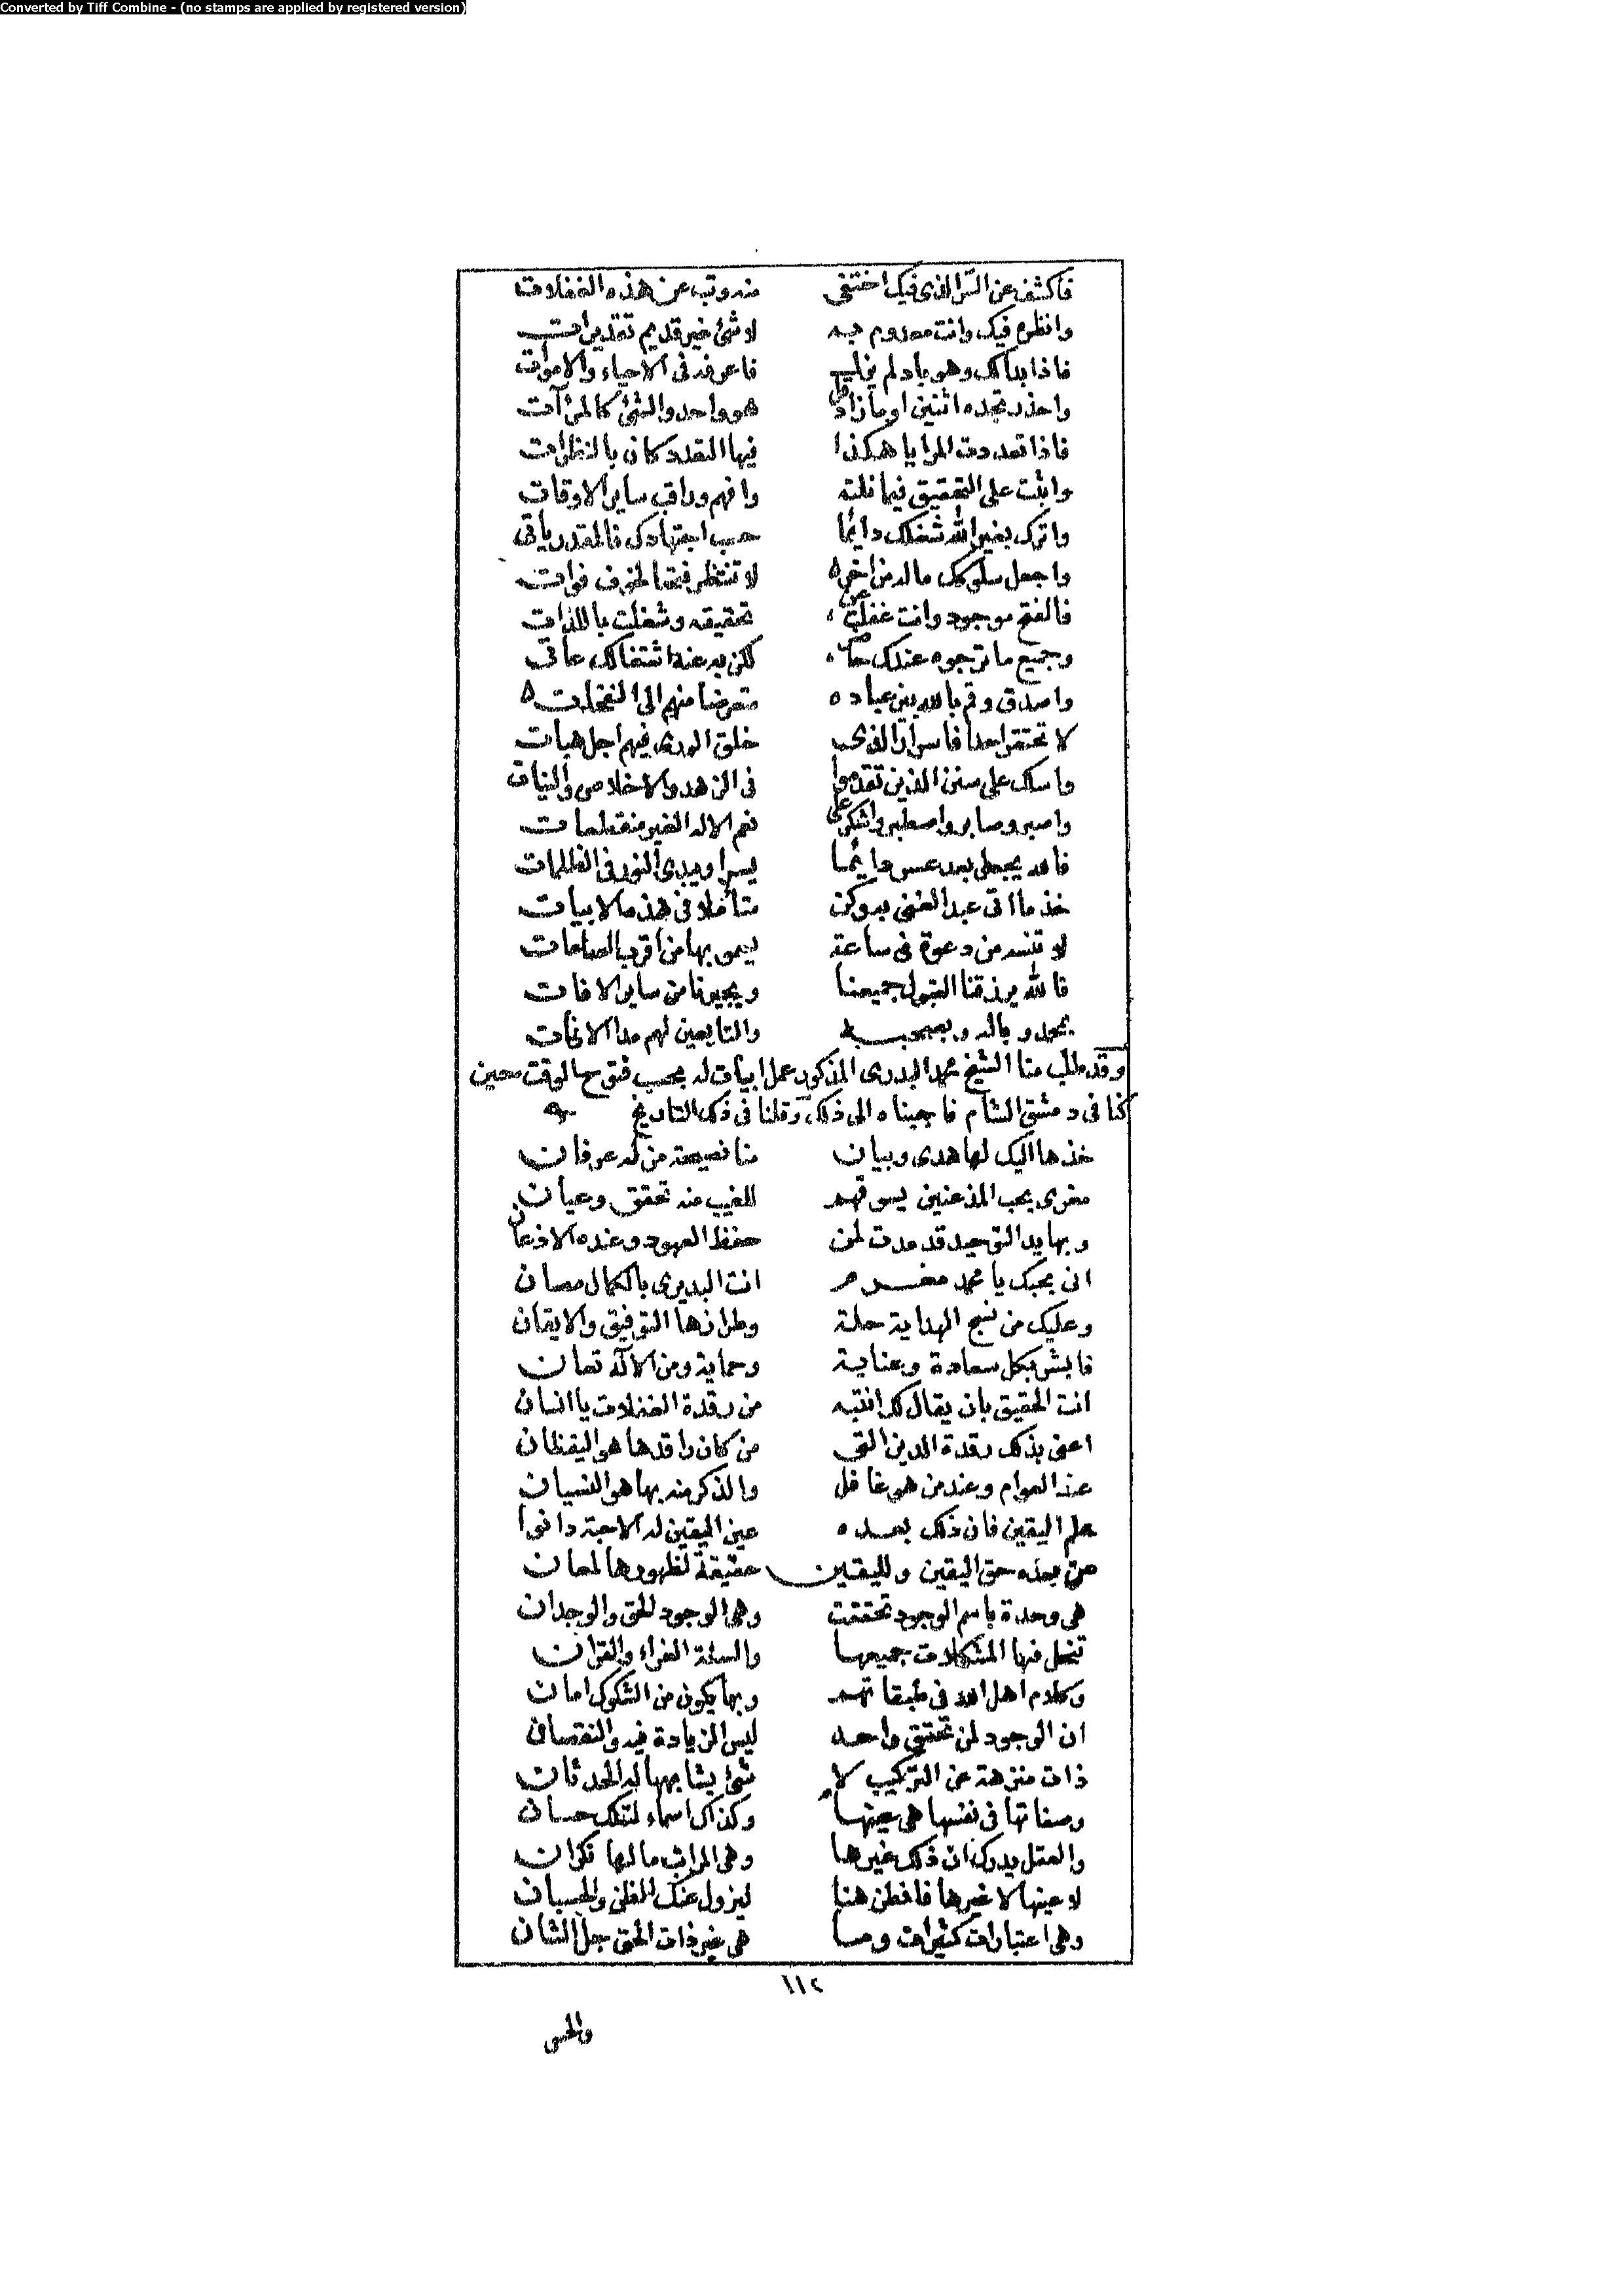 Converted by Tiff Combine - (no stamps are applied by registered version)
فاكشف عن السر الذى فيك اختفى منه وتب عن هذه الغفلات
وانظره فيك وانت معدوم به لا شئ غير قديم تقديرات
فاذا بدا لك وهو باد لم يغب فاعرفه فى الاحياء والاموات
واحذر تجده اثنين او ما زاد هو واحد والشئ كالمرآت
فاذا تعددت المرايا هكذا فيها التعدد كان بالنظرات
واثبت على التحقيق فيما قلته وافهم وراقب ساير الاوقات
واترك بغير الله شغلك دايما حسب اجتهادك فالمقدر ياتى
واجعل سلوكك ماله من اخره لا تنتظر فتحا لخوف فوات
فالفتح موجود وانت غفلت عن تحقيقه وشغلت باللذات
وجميع ما ترجوه عندك لكن به عنه اشتغالك عاتى
واصدق وقم بالله بين عباده متعرضا منهم الى النفحات
لا تحتقر احدا فاسرار الذى خلق الورى فيهم اجل هبات
واسلك على سنن الذين تقدموا فى الزهد والاخلاص والنيات
واصبر وصابر واصطبر واشكر على نعم الاله الغير منقطعات
فالله يجعل بعد عسر دايما يسرا ويبدى النور فى الظلمات
خذ ما اتى عبد الغنى به وكن متأملا فى هذه الابيات
لا تنسه من دعوة فى ساعة يسمو بها من اقرب الساعات
فالله يرزقنا القبول جميعنا ويجيرنا من ساير الافات
بمحمد وباله وبصحبه والتابعين لهم مدا الانات
وقد طلب منا الشيخ محمد البديرى المذكور عمل ابيات له بحسب فتوح الوقت حين
كنا فى دمشق الشام فاجبناه الى ذلك وقلنا فى ذلك التاريخ
خذها اليك لها هدى وبيان منا نصيحة من له عرفان
مغرى بحب المذعنين يسوقهم للغيب منه تحقق وعيان
وبها يد التوحيد قد مدت لمن حفظ العهود وعنده الاذعان
انى بحبك يا محمد مغرم انت البديرى بالكمال مصان
وعليك من نسج الهداية حلة وطرازها التوفيق والايقان
فابشر بكل سعادة وعناية وحماية ومن الاله تعان
انت الحقيق بان يقال لك انتبه من رقدة الغفلات يا انسان
اعنى بذلك رقدة الدين التى من كان راقدها هو اليقظان
عند العوام وعند من هو غافل والذكر منه بها هو النسيان
علم اليقين فان ذلك بعده عين اليقين له الاحبة دانوا
من بعده حق اليقين ولليقين حقيقة لظهورها لمعان
هى وحدة باسم الوجود تحققت وهى الوجود الحق والوجدان
تنحل فيها المشكلات جميعها والسنة الغراء والقرآن
وكلام اهل الله فى طبقاتهم وبها يكون من الشكوك امان
ان الوجود لمن تحقق واحد ليس الزيادة فيه والنقصان
ذات منزهة عن التركيب لا شئ يشابهها له الحدثان
وصفاتها فى نفسها هى عينها وكذاك اسماء لتلك حسان
والعقل يدرك ان ذلك غيرها وهى المراتب ما لها نكران
لا عينها لا غيرها فافطن هنا ليزول عنك الظن والحسبان
وهى اعتبارات كثيرات وما هى غير ذات الحق جل الشان
١١٢
والحس